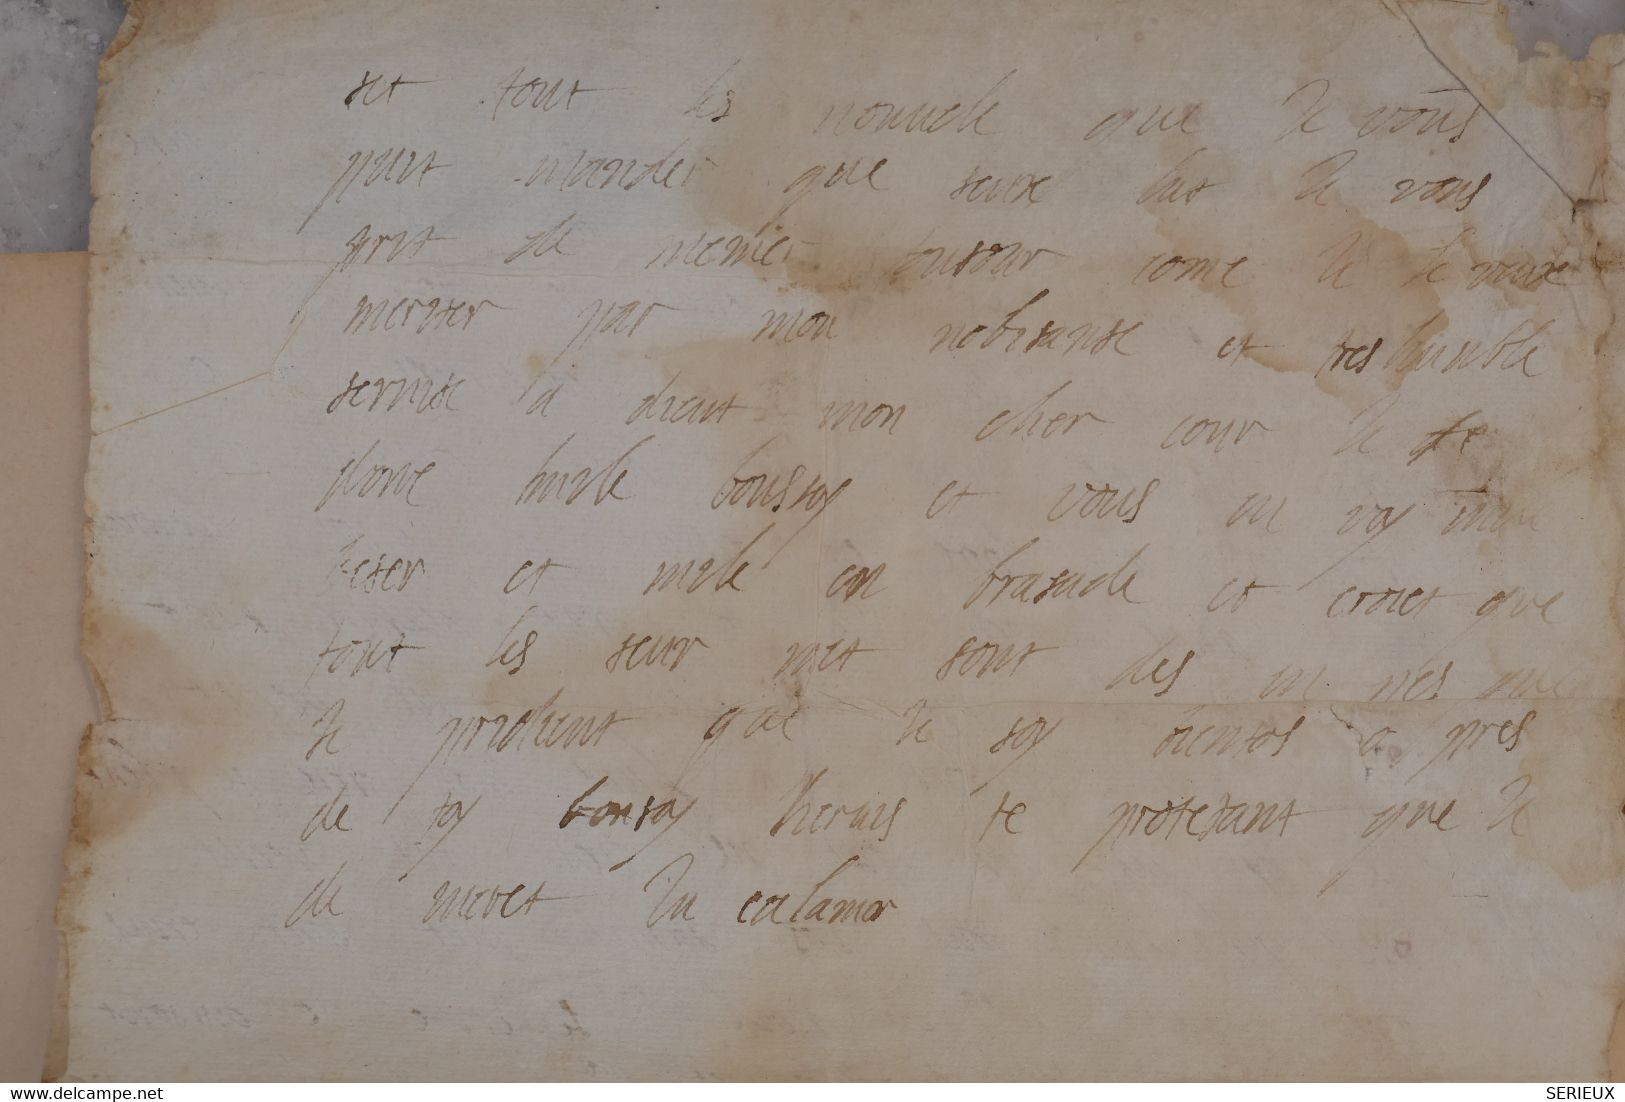 set tout les nouuele que Je vous
puit mander que seux luit Je vous
prit de memer tousour come Je le veux
meriter par mon nobisanse et tres humble
servise a dieut mon cher cour Je te
done mile bonsoy et vous en voy mile
beser et mile en brasade et croiet que
tout les seur met sont des en nes que
Je prie que Je soy bientos a pres
de toy bonsoy te protesant que Je
de meret Du calamor
www.delcampe.net
SERIEUX